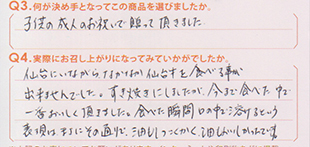 Q3.何が決め手となってこの商品を選びましたか。
子供の成人のお祝いで贈って頂きました。
Q4.実際にお召し上がりになってみていかがでしたか。
仙台にいながらなかなか仙台牛を食べる事が
出来ませんでした。すき焼きにしましたが、今まで食べた中で
一番おいしく頂きました。食べた瞬間口の中で溶けるという
表現はまさにその通りで、油もしつっこくなく、